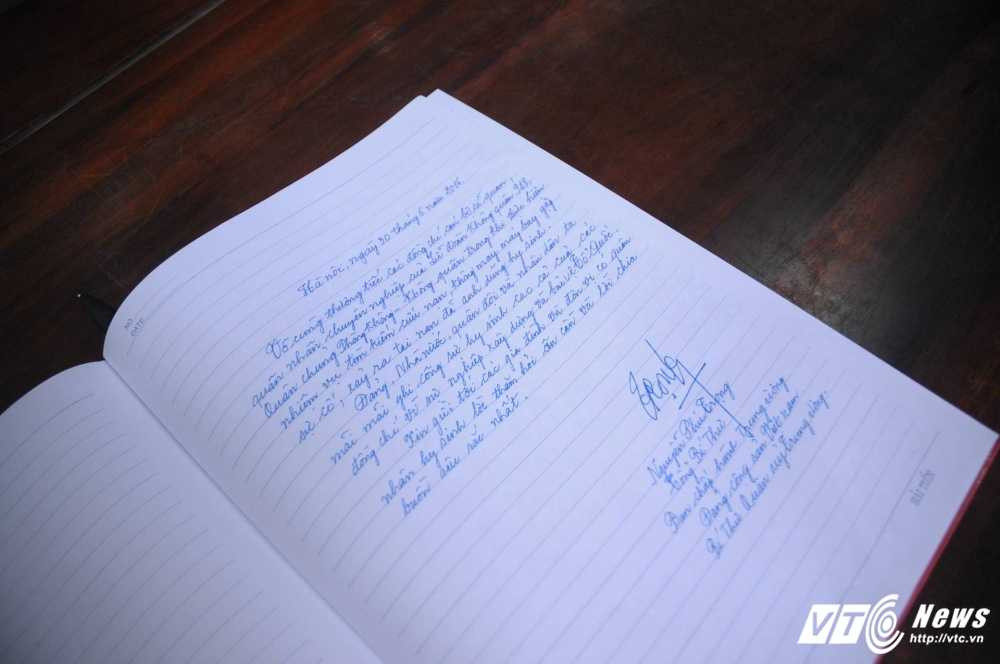 NO
DATE
Hà nội, ngày 30 tháng 6 năm 2016
Vô cùng thương tiếc các đồng chí cán bộ sĩ quan,
quân nhân chuyên nghiệp của Lữ đoàn không quân 918,
Quân chủng Phòng không - không quân trong khi thực hiện
nhiệm vụ tìm kiếm cứu nạn không may máy bay gặp
sự cố, xảy ra tai nạn đã anh dũng hy sinh.
Đảng, Nhà nước, quân đội và nhân dân ta
mãi mãi ghi công sự hy sinh cao cả của các
đồng chí vì sự nghiệp xây dựng và bảo vệ Tổ Quốc.
Xin gửi tới các gia đình và đơn vị có quân
nhân hy sinh lời thăm hỏi ân cần và lời chia
buồn sâu sắc nhất.
Trọng
Nguyễn Phú Trọng
Tổng Bí Thư
Ban chấp hành Trung ương
Đảng cộng sản Việt Nam
Bí Thư Quân uỷ Trung ương.
HẢI TIẾN
VTC News
http://vtc.vn